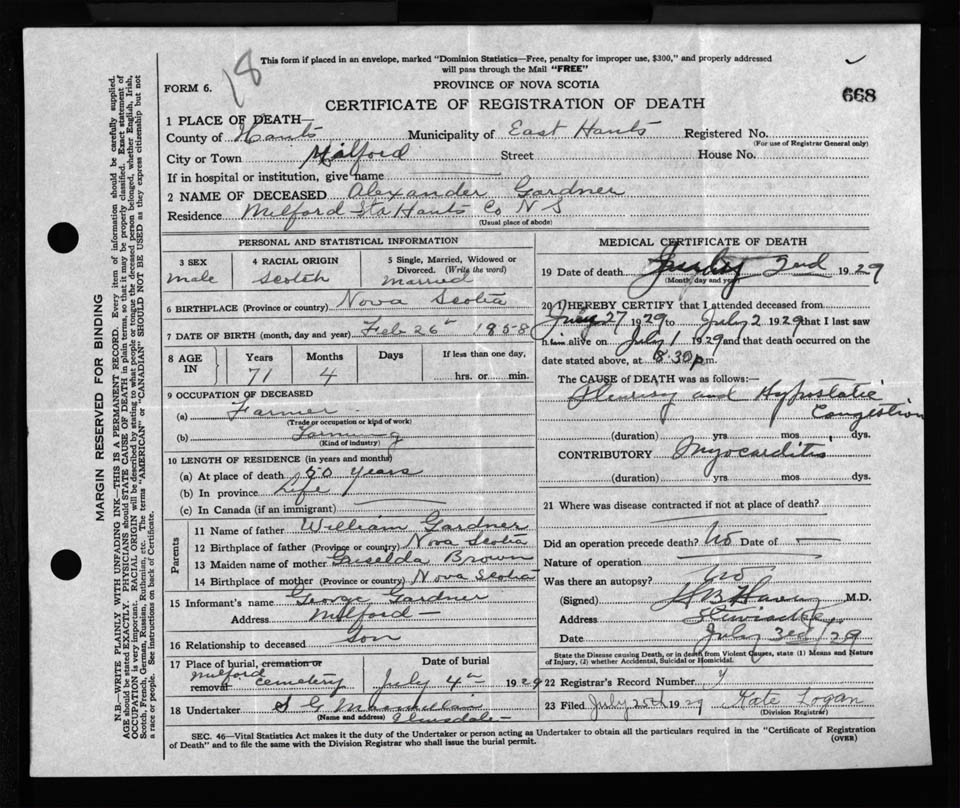 18
This form if placed in an envelope, marked "Dominion Statistics—Free, penalty for improper use, $300," and properly addressed
will pass through the Mail "FREE"
FORM 6.
PROVINCE OF NOVA SCOTIA
668
CERTIFICATE OF REGISTRATION OF DEATH
1 PLACE OF DEATH—
County of Hants Municipality of East Hants Registered No.
(For use of Registrar General only)
City or Town Milford Street House No.
If in hospital or institution, give name
2 NAME OF DECEASED Alexander Gardner
Residence Milford Sta Hants Co N S
(Usual place of abode)
PERSONAL AND STATISTICAL INFORMATION
3 SEX 4 RACIAL ORIGIN 5 Single, Married, Widowed or
Divorced. (Write the word)
male scotch married
6 BIRTHPLACE (Province or country) Nova Scotia
7 DATE OF BIRTH (month, day and year) Feb 26th 1858
8 AGE IN Years Months Days If less than one day,
71 4 hrs. or min.
9 OCCUPATION OF DECEASED
(a) Farmer
(Trade or occupation or kind of work)
(b) Farming
(Kind of industry)
10 LENGTH OF RESIDENCE (in years and months)
(a) At place of death 50 years
(b) In province Life
(c) In Canada (if an immigrant)
Parents
11 Name of father William Gardner
12 Birthplace of father (Province or country) Nova Scotia
13 Maiden name of mother Griselda Brown
14 Birthplace of mother (Province or country) Nova Scotia
15 Informant's name George Gardner
Address Milford
16 Relationship to deceased Son
17 Place of burial, cremation or Date of burial
removal Milford cemetery July 4th 1929
18 Undertaker S G
(Name and address) Elmsdale
MEDICAL CERTIFICATE OF DEATH
19 Date of death July 2nd 1929
(Month, day and year)
20 I HEREBY CERTIFY that I attended deceased from
27 1929 to July 2 1929 that I last saw
h alive on July 1 1929 and that death occurred on the
date stated above, at 8.30 p.m.
The CAUSE of DEATH was as follows:—
Pleurisy and Hypostatic
Congestion
(duration) yrs mos dys.
CONTRIBUTORY Myocarditis
(duration) yrs mos dys.
21 Where was disease contracted if not at place of death?
Did an operation precede death? No Date of —
Nature of operation
Was there an autopsy? No
(Signed) M.D.
Address
Date July 3rd 1929
State the Disease causing Death, or in death from Violent Causes, state (1) Means and Nature
of Injury, (2) whether Accidental, Suicidal or Homicidal.
22 Registrar's Record Number
23 Filed July 1929 Kate Logan
(Division Registrar)
SEC. 46—Vital Statistics Act makes it the duty of the Undertaker or person acting as Undertaker to obtain all the particulars required in the "Certificate of Registration
of Death" and to file the same with the Division Registrar who shall issue the burial permit.
(OVER)
MARGIN RESERVED FOR BINDING
N.B.—WRITE PLAINLY WITH UNFADING INK—THIS IS A PERMANENT RECORD. Every item of information should be carefully supplied.
AGE should be stated EXACTLY. PHYSICIANS should STATE CAUSE OF DEATH in plain terms, so that it may be properly classified. Exact statement of
OCCUPATION is very important. RACIAL ORIGIN will be described by stating to what people or tongue the deceased person belonged, whether English, Irish,
Scotch, French, German, Russian, Ruthenian, etc. The terms "AMERICAN" or "CANADIAN" SHOULD NOT BE USED as they express citizenship but not
a race or people. See instructions on back of Certificate.